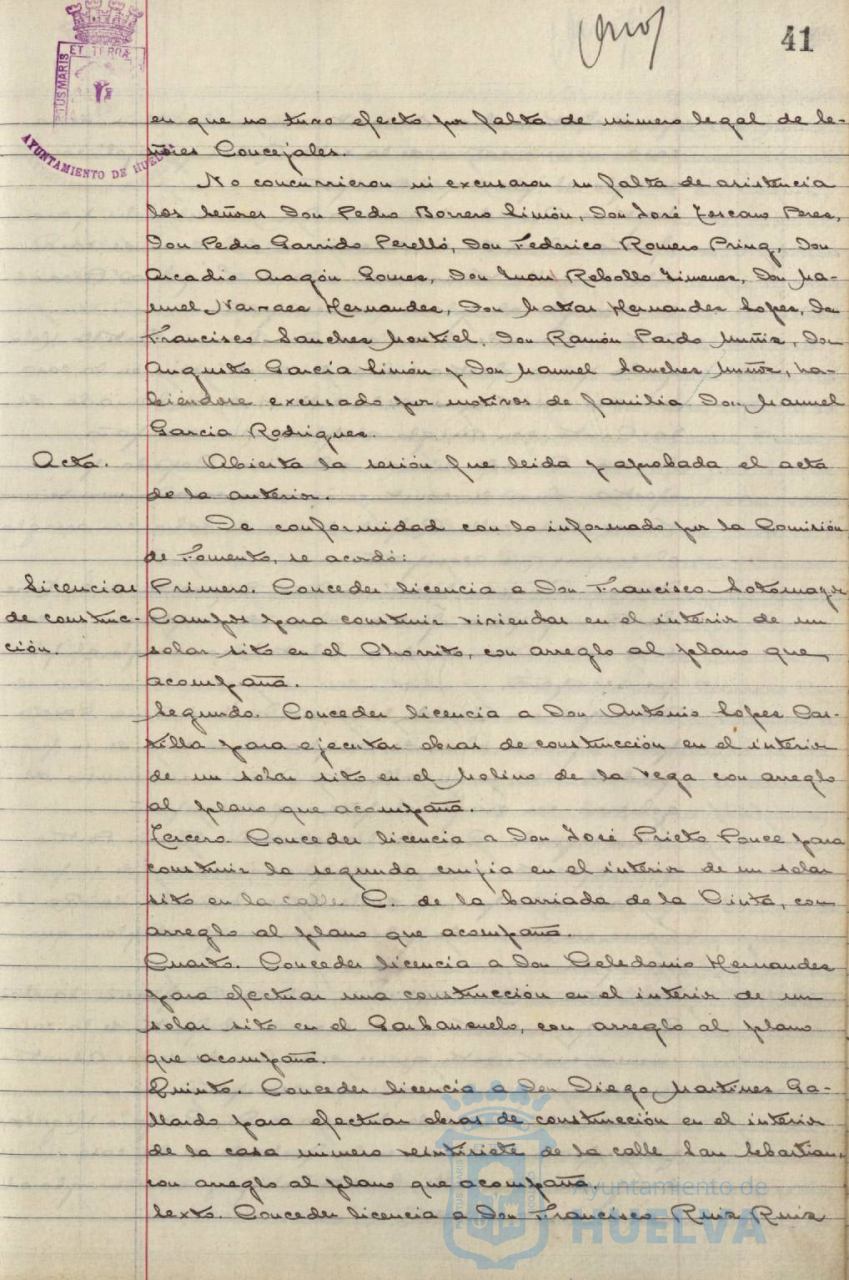 41
ET TERRA
PORTUS MARIS
AYUNTAMIENTO DE HUELVA
en que no tuvo efecto por falta de número legal de Se-
ñores Concejales.
No concurrieron ni excusaron su falta de asistencia
los Señores Don Pedro Borrero Limón, Don José Toscano Perez,
Don Pedro Garrido Perelló, Don Federico Romero Don
Arcadio Aragón Gomez, Don Juan Rebollo Jimenez, Don Ma-
nuel Narvaez Hernandez, Don Matias Hernandez Lopez, Don
Francisco Sanchez Montiel, Don Ramón Pardo Muñiz, Don
Augusto García Limón y Don Manuel Sanchez Muñoz, ha-
biéndose excusado por motivos de familia Don Manuel
Garcia Rodriguez.
Acta. Abierta la sesión fue leida y aprobada el acta
de la anterior.
De conformidad con lo informado por la Comisión
de Fomento, se acordó:
Licencias Primero. Conceder licencia a Don Francisco Sotomayor
de construc- Campos para construir viviendas en el interior de un
ción. solar sito en el Chorrito, con arreglo al plano que
acompaña.
Segundo. Conceder licencia a Don Antonio Lopez Cas-
tilla para ejecutar obras de construcción en el interior
de un solar sito en el Molino de la Vega con arreglo
al plano que acompaña.
Tercero. Conceder licencia a Don José Prieto Ponce para
construir la segunda crujia en el interior de un solar
sito en la calle C. de la barriada de la Cinta, con
arreglo al plano que acompaña.
Cuarto. Conceder licencia a Don Celedonio Hernandez
para efectuar una construcción en el interior de un
solar sito en el Garbanzuelo, con arreglo al plano
que acompaña.
Quinto. Conceder licencia a Don Diego Martinez Ga-
llardo para efectuar obras de construcción en el interior
de la casa número veintisiete de la calle San Sebastian,
con arreglo al plano que acompaña.
Sexto. Conceder licencia a Don Francisco Ruiz Ruiz
Ayuntamiento de
HUELVA